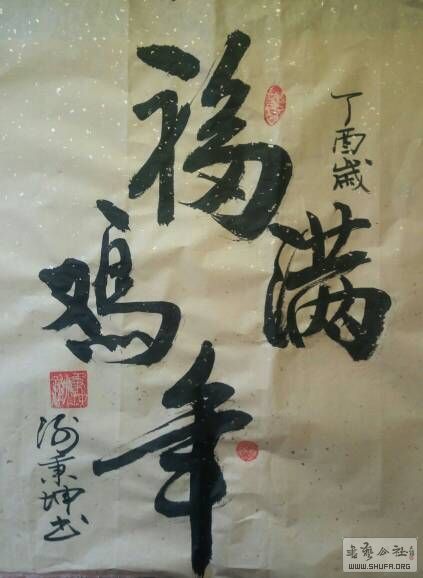 丁酉岁
福满鸡年
秉坤书
书艺公社
WWW.SHUFA.ORG